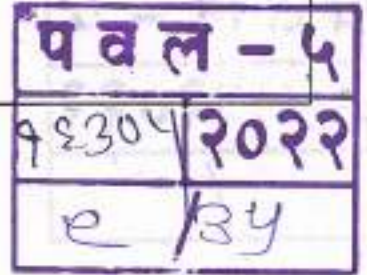 पवल - ५
१६३०५ २०२२
९ / ३५